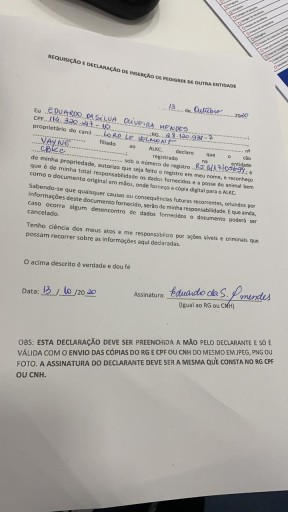 REQUISIÇÃO E DECLARAÇÃO DE INSERÇÃO DE PEDIGREE DE OUTRA ENTIDADE
13 de Outubro 2020
Eu EDUARDO DA SILVA OLIVEIRA MENDES
CPF RG nº
proprietário do canil
filiado ao ALKC, declaro que o cão
VAYNE registrado na entidade
CBKC sob o número de registro
de minha propriedade, autorizo que seja feito o registro em meu nome, e reconheço
que é de minha total responsabilidade os dados fornecidos e a posse do animal bem
como o documento original em mãos, onde forneço a cópia digital para o ALKC.
Sabendo-se que quaisquer causas ou consequências futuras recorrentes, oriundos por
informações deste documento fornecido, serão de minha responsabilidade. E que ainda,
caso ocorra algum desencontro de dados fornecidos o documento poderá ser
cancelado.
Tenho ciência dos meus atos e me responsabilizo por ações cíveis e criminais que
possam recorrer sobre as informações aqui declaradas.
O acima descrito é verdade e dou fé
Data: 13 / 10 /20 20 Assinatura: Eduardo da S. O mendes
(Igual ao RG ou CNH)
OBS: ESTA DECLARAÇÃO DEVE SER PREENCHIDA A MÃO PELO DECLARANTE E SÓ É
VÁLIDA COM O ENVIO DAS CÓPIAS DO RG E CPF OU CNH DO MESMO EM JPEG, PNG OU
FOTO. A ASSINATURA DO DECLARANTE DEVE SER A MESMA QUE CONSTA NO RG CPF
OU CNH.